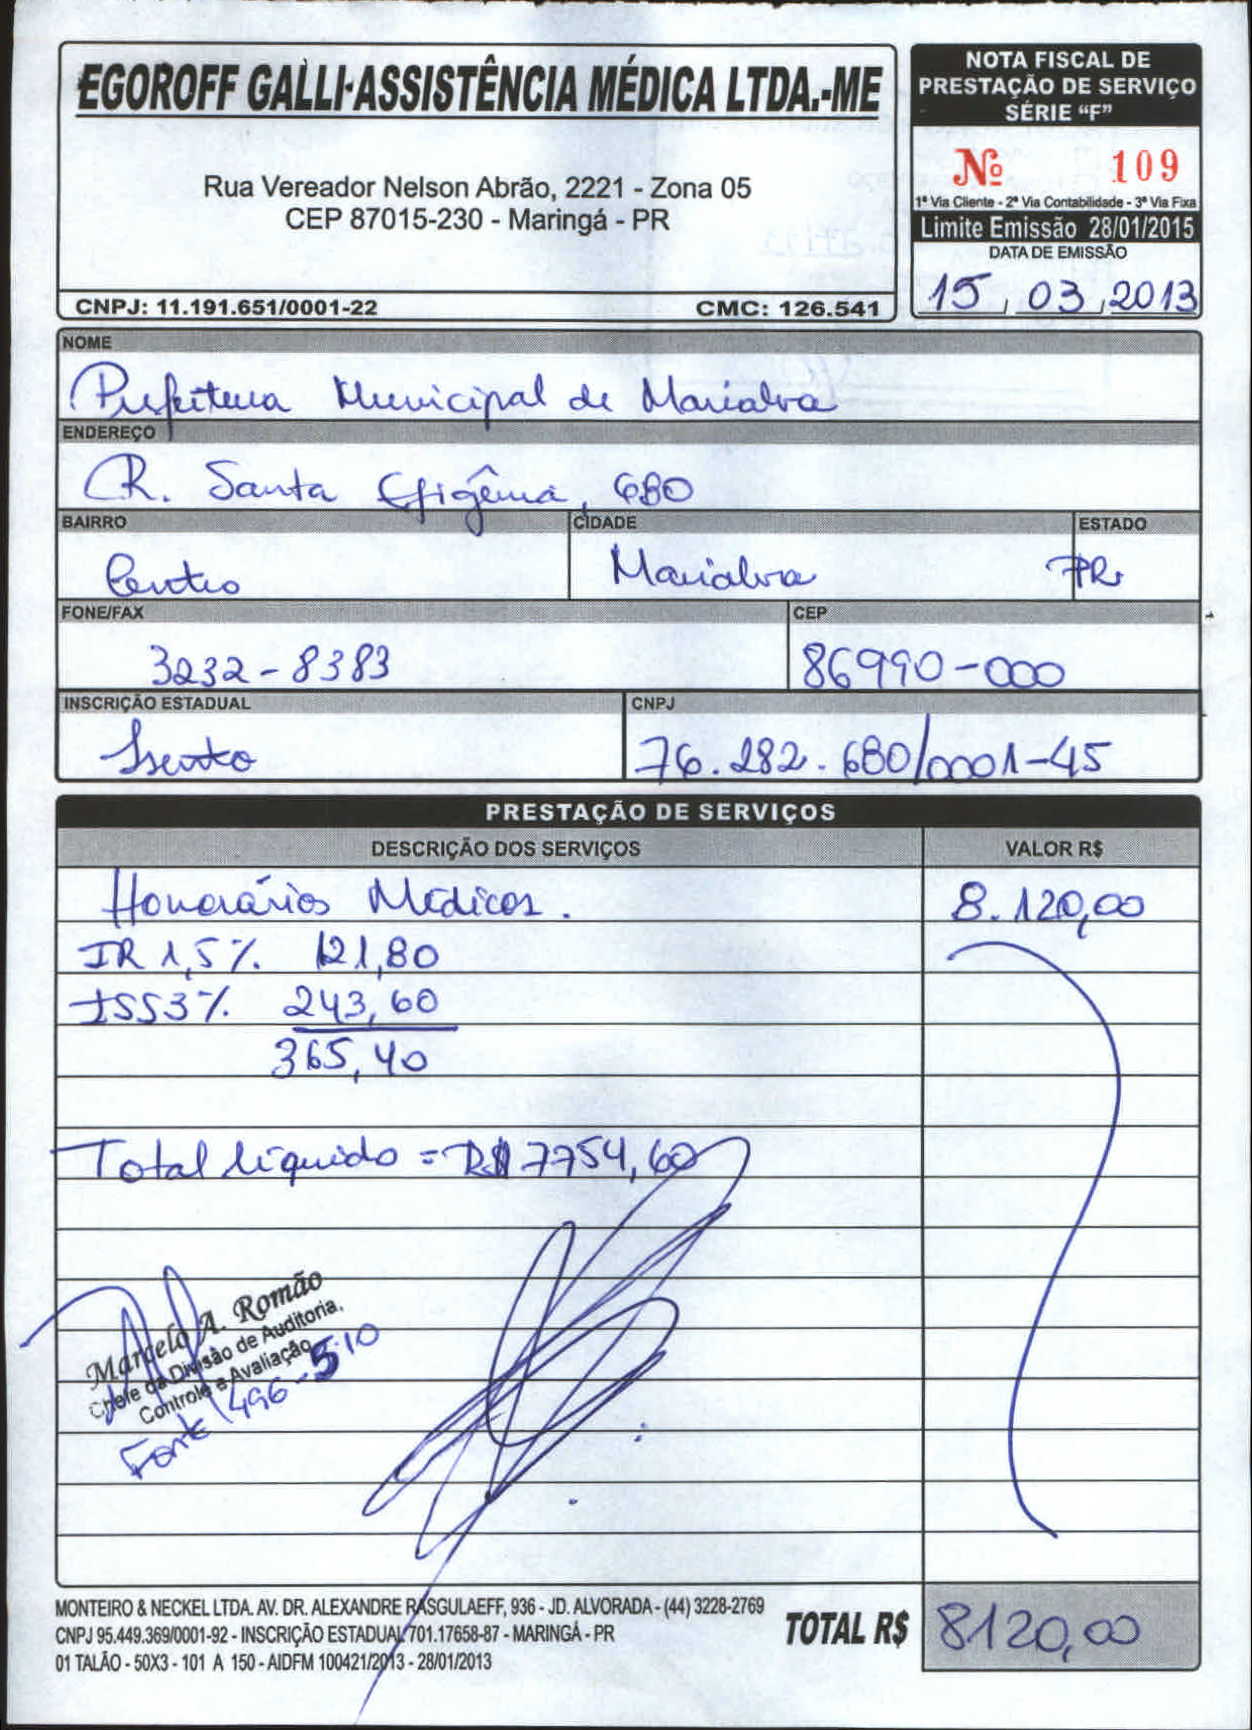 EGOROFF GALLI-ASSISTÊNCIA MÉDICA LTDA.-ME
Rua Vereador Nelson Abrão, 2221 - Zona 05
CEP 87015-230 - Maringá - PR
CNPJ: 11.191.651/0001-22 CMC: 126.541
NOTA FISCAL DE
PRESTAÇÃO DE SERVIÇO
SÉRIE “F”
Nº 109
1ª Via Cliente - 2ª Via Contabilidade - 3ª Via Fixa
Limite Emissão 28/01/2015
DATA DE EMISSÃO
15, 03, 2013
NOME
Prefeitura Municipal de Marialva
ENDEREÇO
R. Santa Efigênia, 680
BAIRRO CIDADE ESTADO
Centro Marialva PR.
FONE/FAX CEP
3232-8383 86990-000
INSCRIÇÃO ESTADUAL CNPJ
Isento 76.282.680/0001-45
PRESTAÇÃO DE SERVIÇOS
DESCRIÇÃO DOS SERVIÇOS VALOR R$
Honorários Médicos. 8.120,00
IR 1,5% 121,80
ISS3% 243,60
365,40
Total líquido = R$ 7754,60
Marcelo A. Romão
Chefe da Divisão de Auditoria,
Controle e Avaliação
Fonte 1496-510
MONTEIRO & NECKEL LTDA. AV. DR. ALEXANDRE RASGULAEFF, 936 - JD. ALVORADA - (44) 3228-2769
CNPJ 95.449.369/0001-92 - INSCRIÇÃO ESTADUAL 701.17658-87 - MARINGÁ - PR
01 TALÃO - 50X3 - 101 A 150 - AIDFM 100421/2013 - 28/01/2013
TOTAL R$ 8120,00